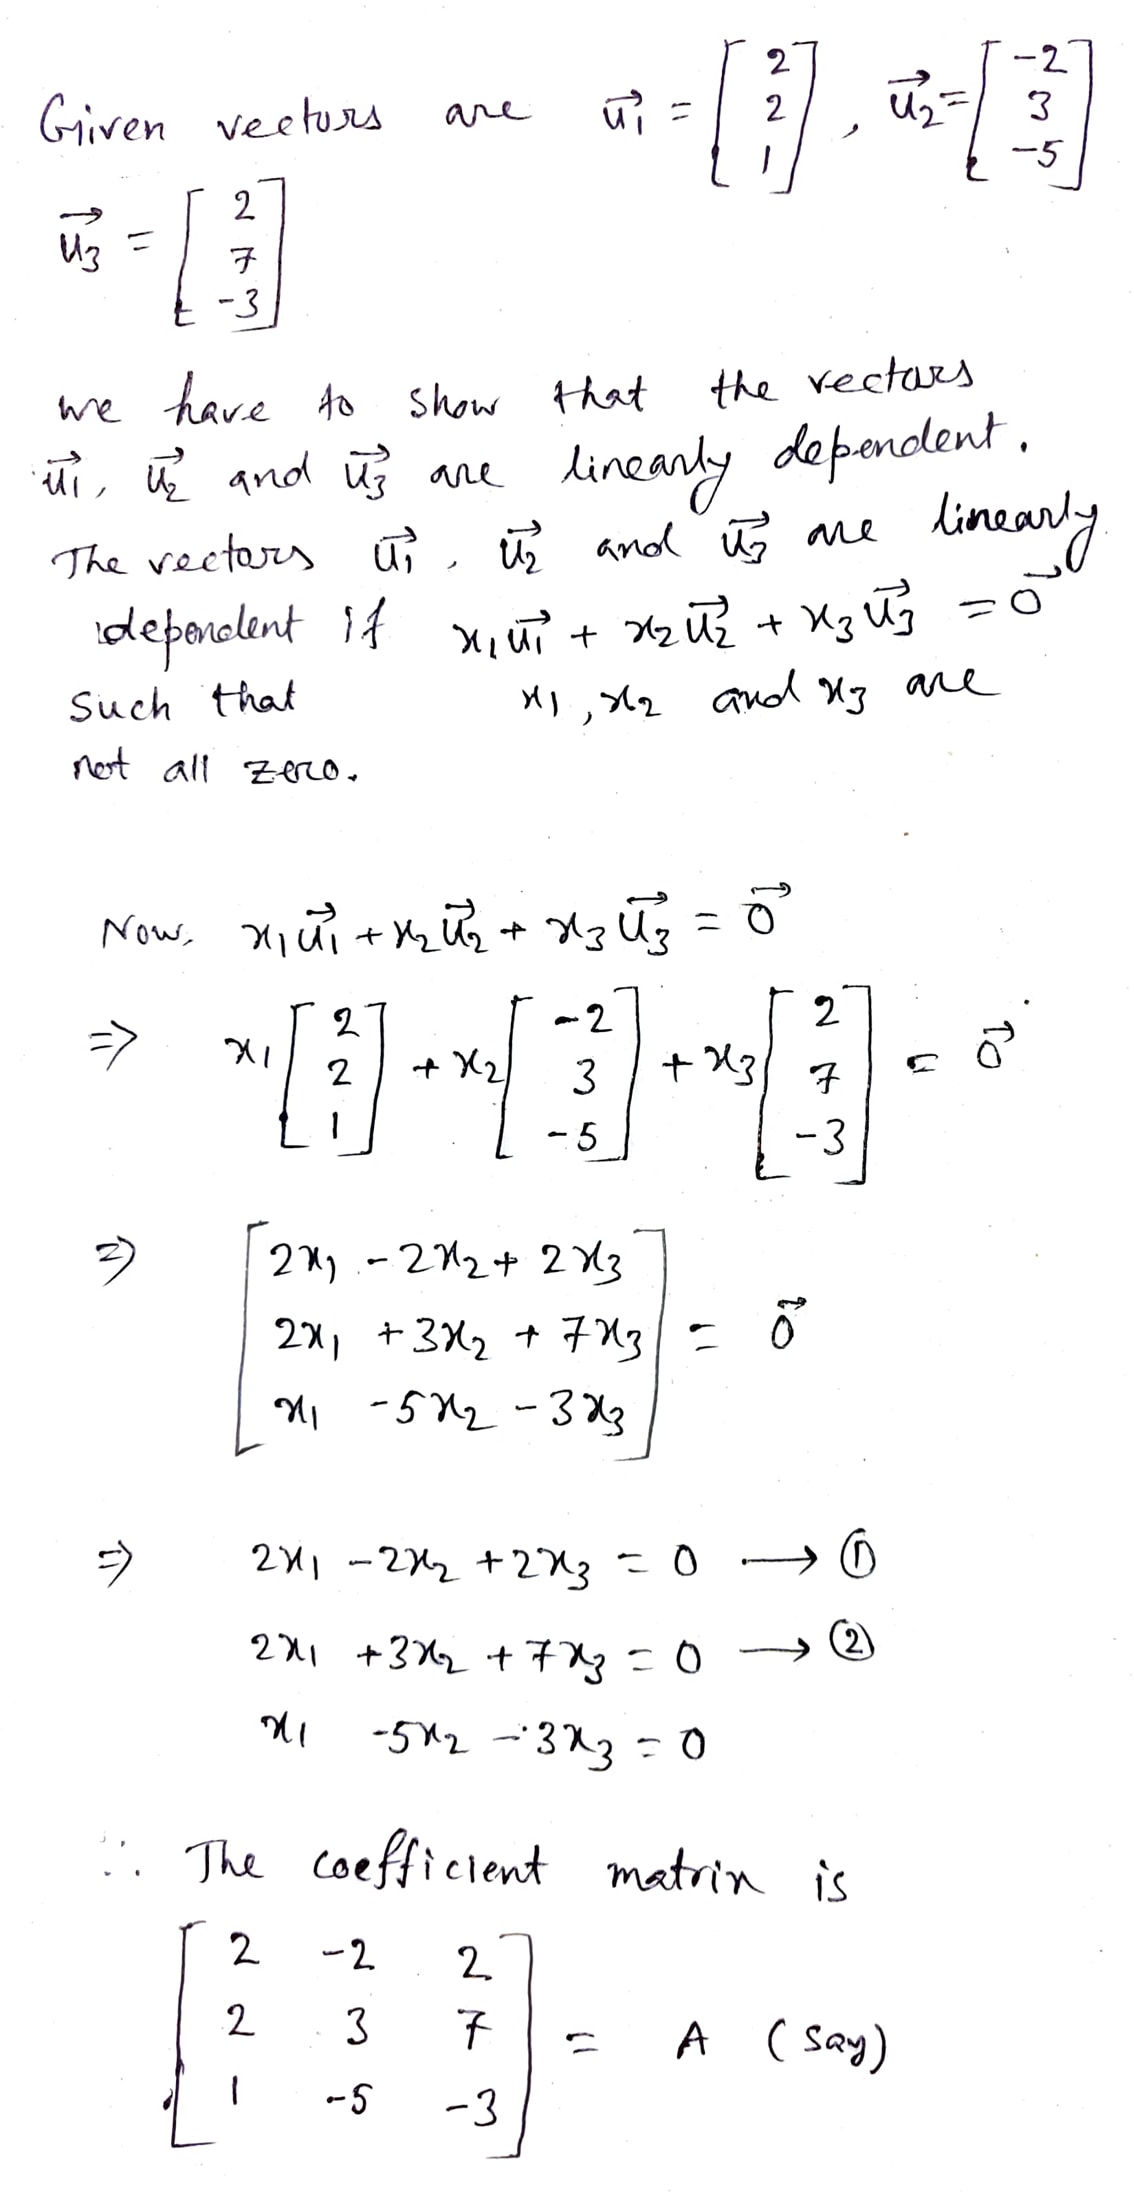 Given vectors are u⃗₁ = [2 2 1], u⃗₂ = [-2 3 -5]
u⃗₃ = [2 7 -3]
we have to show that the vectors
u⃗₁, u⃗₂ and u⃗₃ are linearly dependent.
The vectors u⃗₁, u⃗₂ and u⃗₃ are linearly
dependent if x₁u⃗₁ + x₂u⃗₂ + x₃u⃗₃ = 0⃗
such that x₁, x₂ and x₃ are
not all zero.
Now, x₁u⃗₁ + x₂u⃗₂ + x₃u⃗₃ = 0⃗
⇒ x₁[2 2 1] + x₂[-2 3 -5] + x₃[2 7 -3] = 0⃗
⇒ [2x₁ - 2x₂ + 2x₃
2x₁ + 3x₂ + 7x₃
x₁ - 5x₂ - 3x₃] = 0⃗
⇒ 2x₁ - 2x₂ + 2x₃ = 0 ⟶ ①
2x₁ + 3x₂ + 7x₃ = 0 ⟶ ②
x₁ - 5x₂ - 3x₃ = 0
∴ The coefficient matrix is
[2 -2 2
2 3 7
1 -5 -3] = A (say)